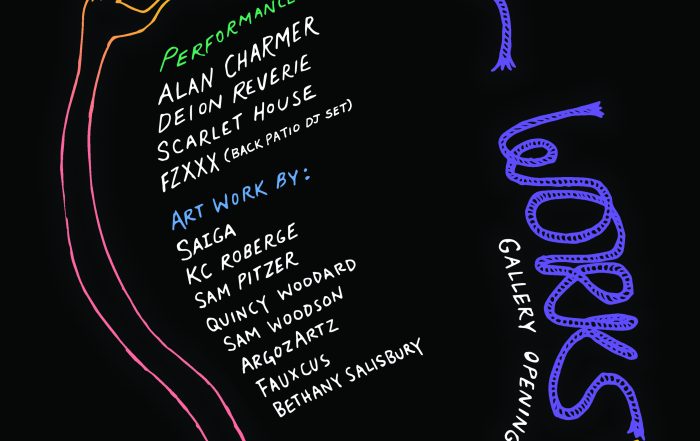 PERFORMANCE
ALAN CHARMER
DEION REVERIE
SCARLET HOUSE
FZXXX (BACK PATIO DJ SET)
ART WORK BY:
SAIGA
KC ROBERGE
SAM PITZER
QUINCY WOODARD
SAM WOODSON
ARGOZARTZ
FAUXCUS
BETHANY SALISBURY
WORKS
GALLERY OPENING